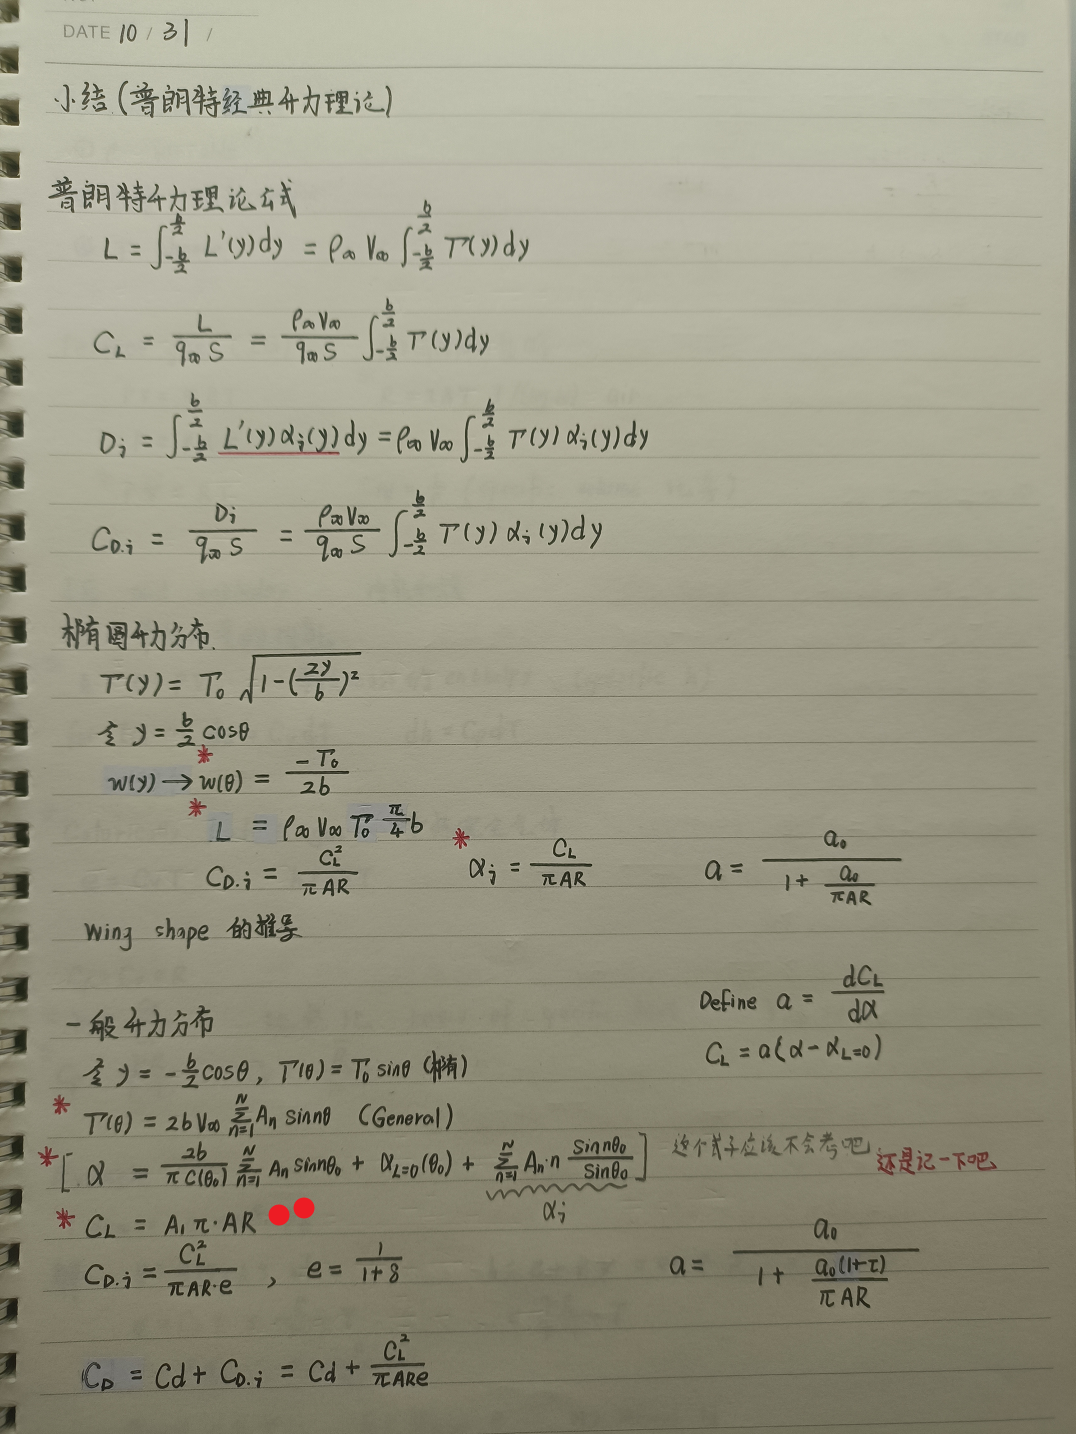 DATE 10 / 31 /
小结 (普朗特经典升力理论)
普朗特升力理论公式
L = ∫_{-b/2}^{b/2} L'(y)dy = ρ∞ V∞ ∫_{-b/2}^{b/2} Γ(y)dy
C_L = L / (q∞ S) = (ρ∞V∞ / (q∞ S)) ∫_{-b/2}^{b/2} Γ(y)dy
D_i = ∫_{-b/2}^{b/2} L'(y)α_i(y)dy = ρ∞ V∞ ∫_{-b/2}^{b/2} Γ(y)α_i(y)dy
C_{D.i} = D_i / (q∞ S) = (ρ∞V∞ / (q∞ S)) ∫_{-b/2}^{b/2} Γ(y)α_i(y)dy
椭圆升力分布.
Γ(y) = Γ₀ √(1-(2y/b)²)
令 y = b/2 cosθ
w(y) → * w(θ) = -Γ₀ / 2b
* L = ρ∞ V∞ Γ₀ π/4 b
C_{D.i} = C_L² / (π AR) * α_i = C_L / (π AR) a = a₀ / (1 + a₀/(πAR))
Wing shape 的推导
Define a = dC_L / dα
一般升力分布
C_L = a(α - α_{L=0})
令 y = -b/2 cosθ, Γ(θ) = Γ₀ sinθ (椭)
* Γ(θ) = 2b V∞ Σ_{n=1}^{N} An sin nθ (General)
* [. α = (2b / (π C(θ₀))) Σ_{n=1}^{N} An sin nθ₀ + α_{L=0}(θ₀) + Σ_{n=1}^{N} An·n (sin nθ₀ / sinθ₀) ] 这个式子应该不会考吧 还是记一下吧
α_i
* C_L = A₁ π·AR
C_{D.i} = C_L² / (πAR·e) , e = 1 / (1+δ) a = a₀ / (1 + a₀(1+τ)/(πAR))
C_D = Cd + C_{D.i} = Cd + C_L² / (πARe)